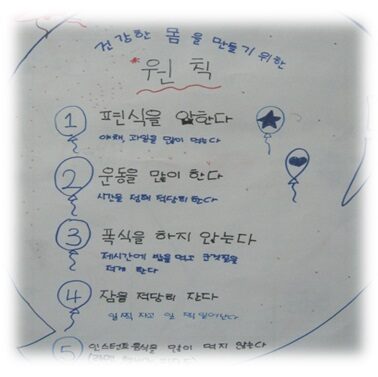 건강한 몸을 만들기 위한
*원칙
1 편식을 안한다
야채, 과일을 많이 먹는다
2 운동을 많이 한다
시간을 정해 적당히 한다
3 폭식을 하지 않는다
제시간에 밥을 먹고 군것질을
적게 한다
4 잠을 적당히 잔다
일찍 자고 일찍 일어난다
5 인스턴트 음식을 많이 먹지 않는다